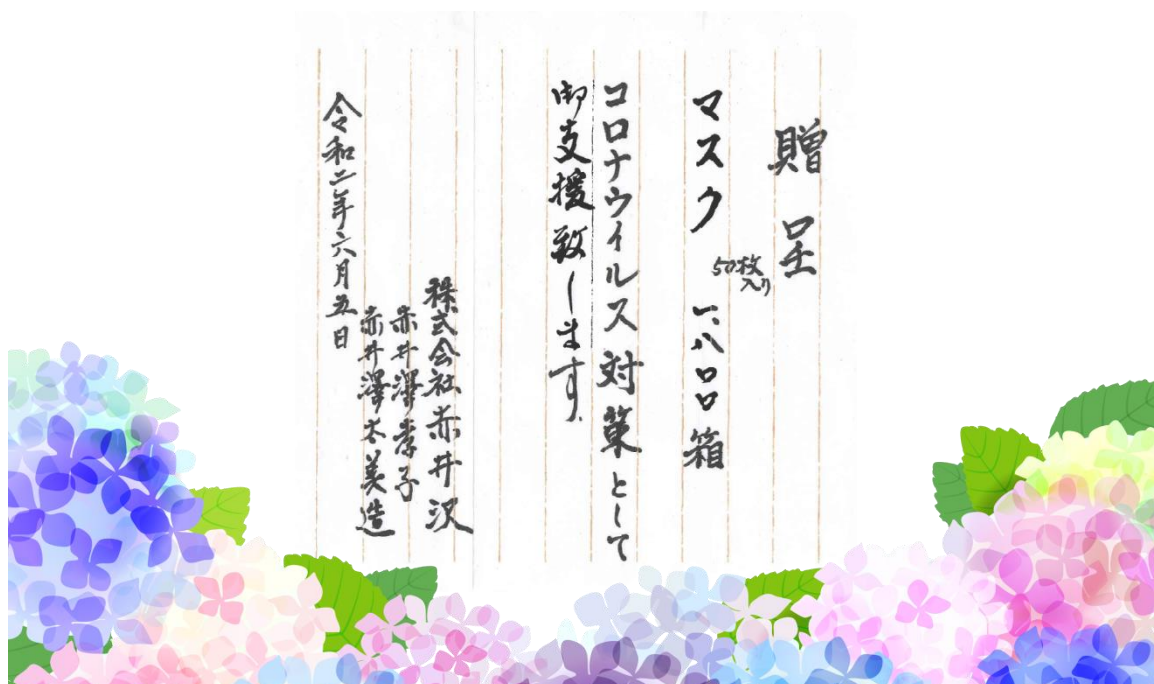 贈呈
マスク 50枚入り 一、八〇〇箱
コロナウイルス対策として
御支援致します
株式会社赤井沢
赤井澤孝子
赤井澤太美造
令和二年六月五日